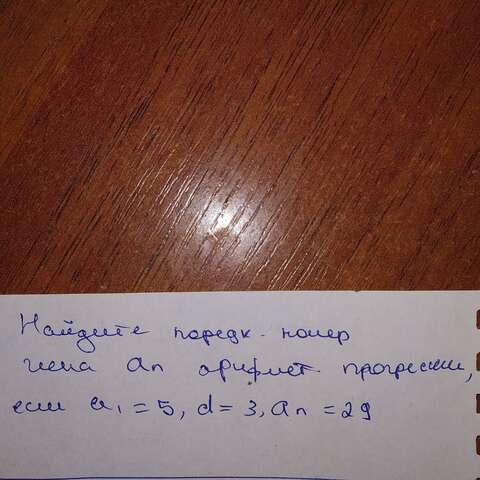 Найдите порядк. номер
члена an арифмет. прогрессии,
если a₁ = 5, d = 3, an = 29